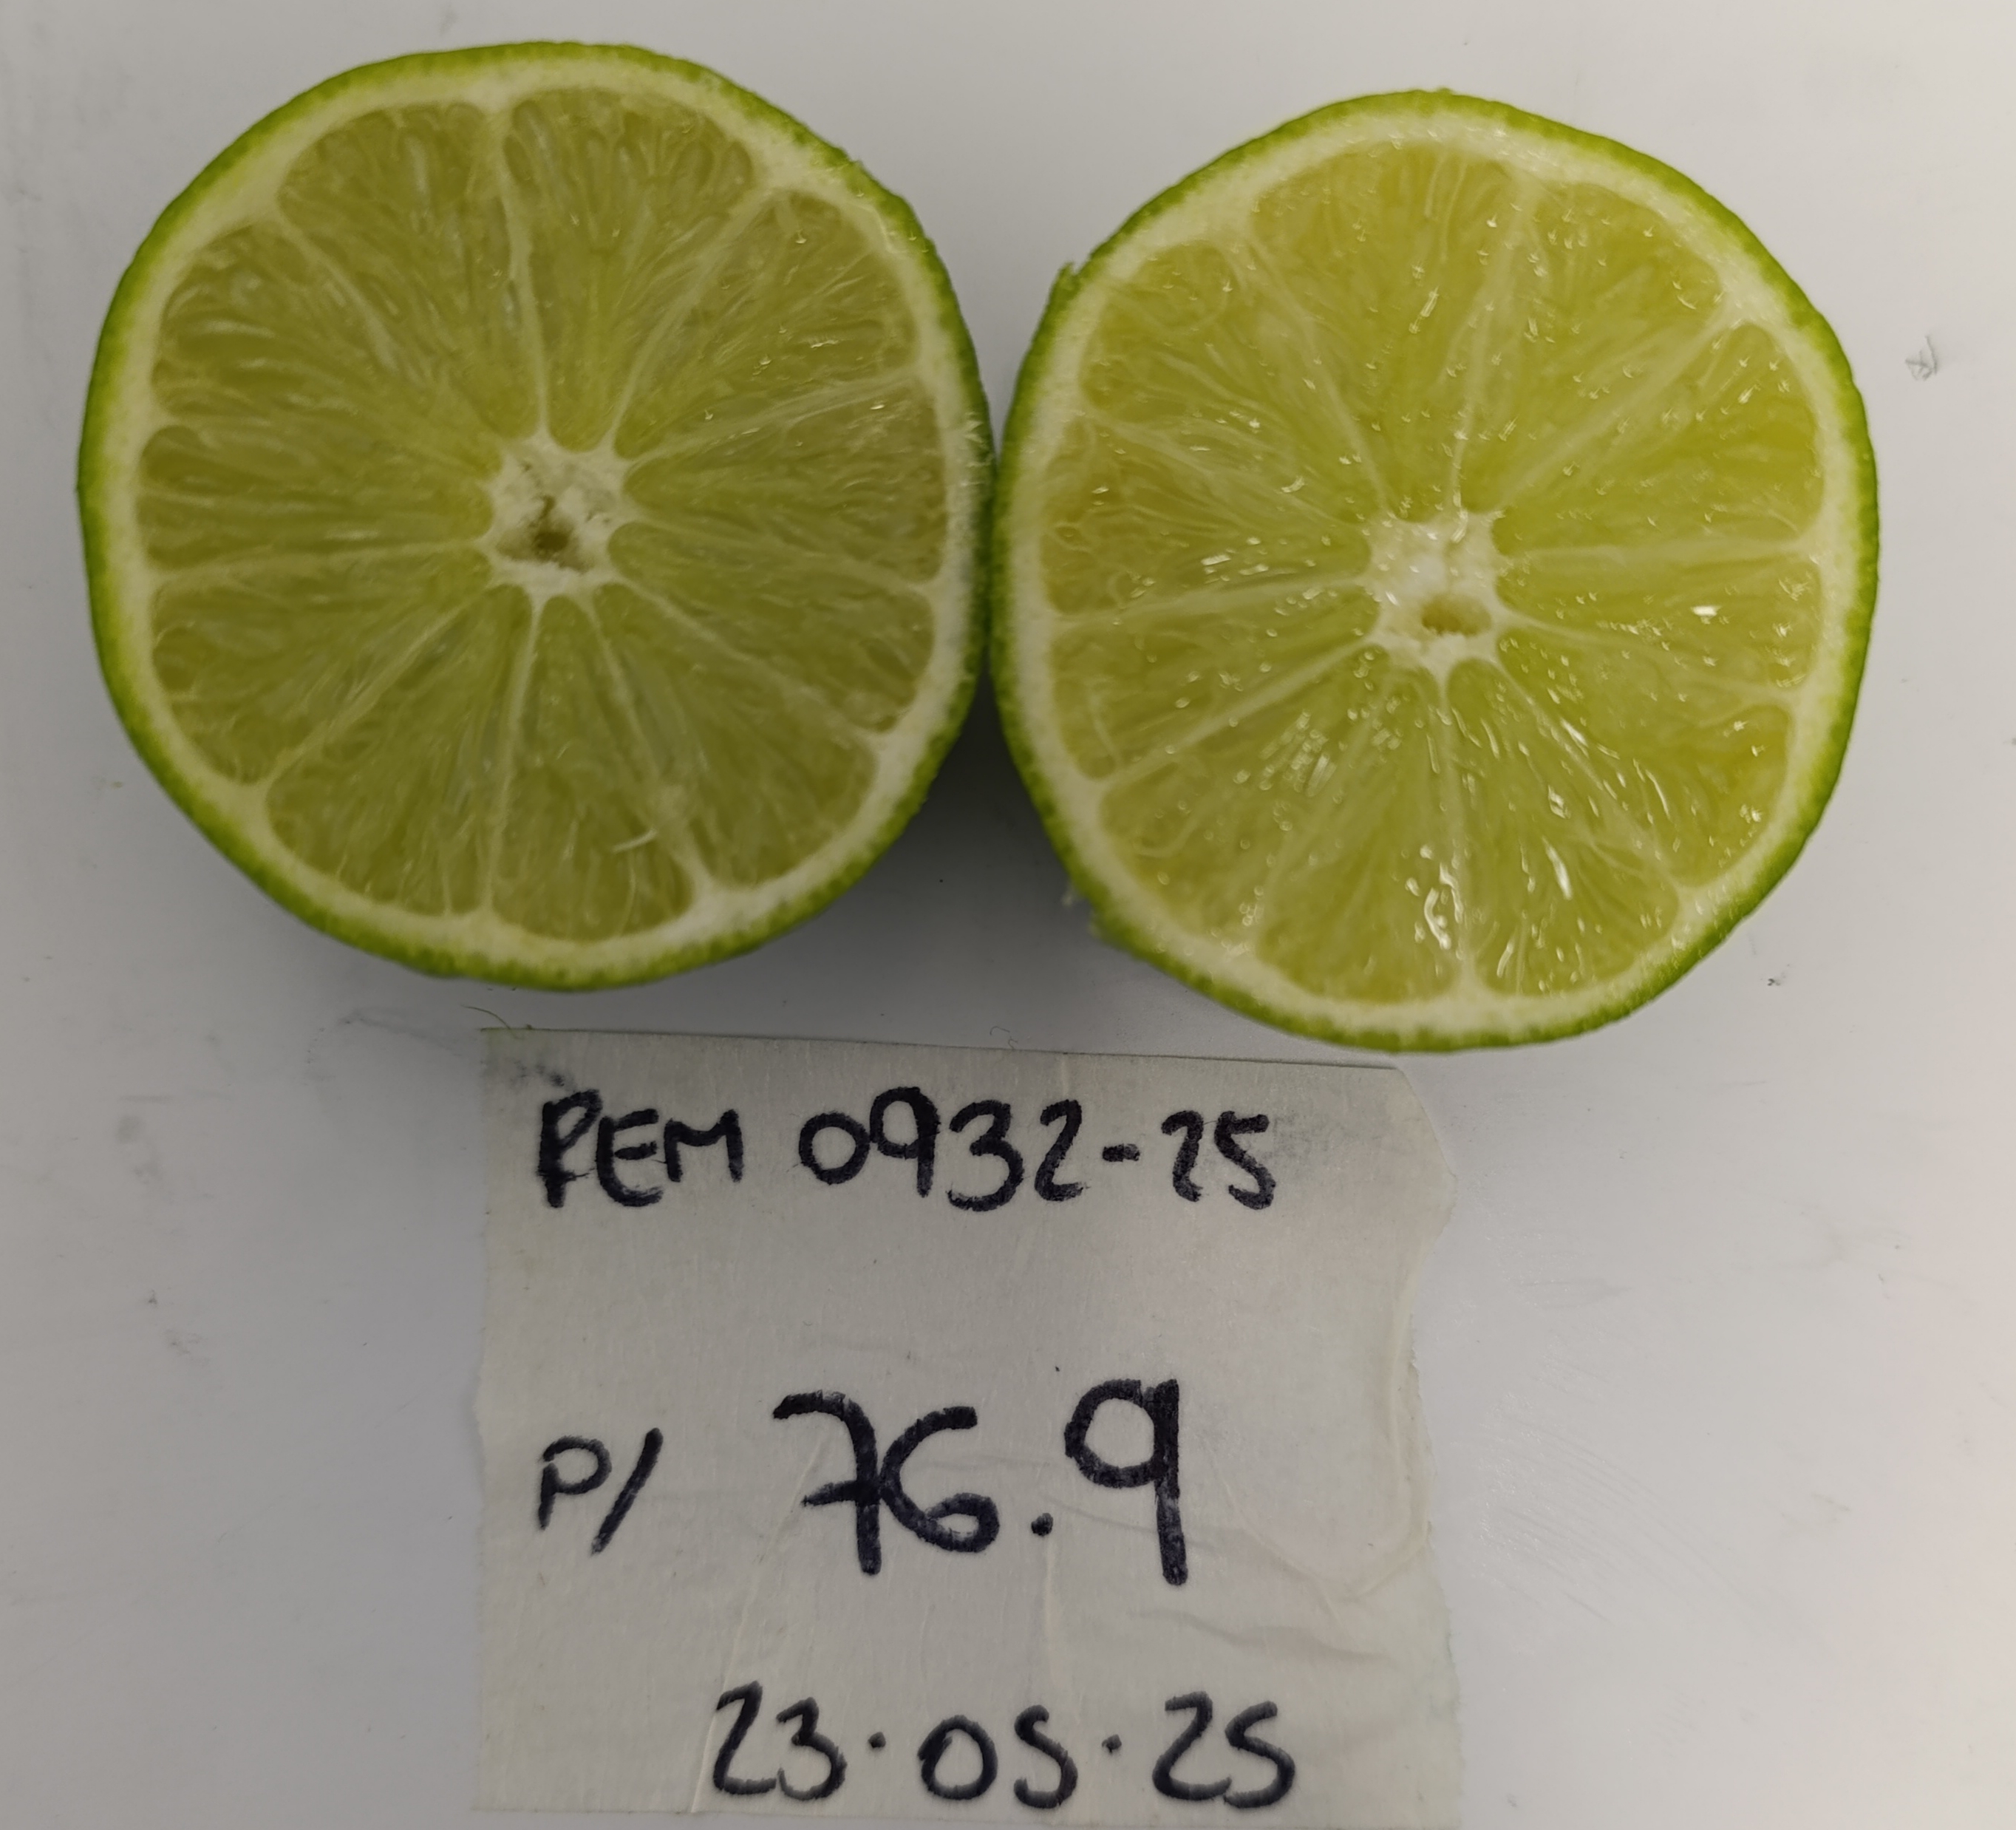 REM 0932-25
P/ 76.9
23.05.25